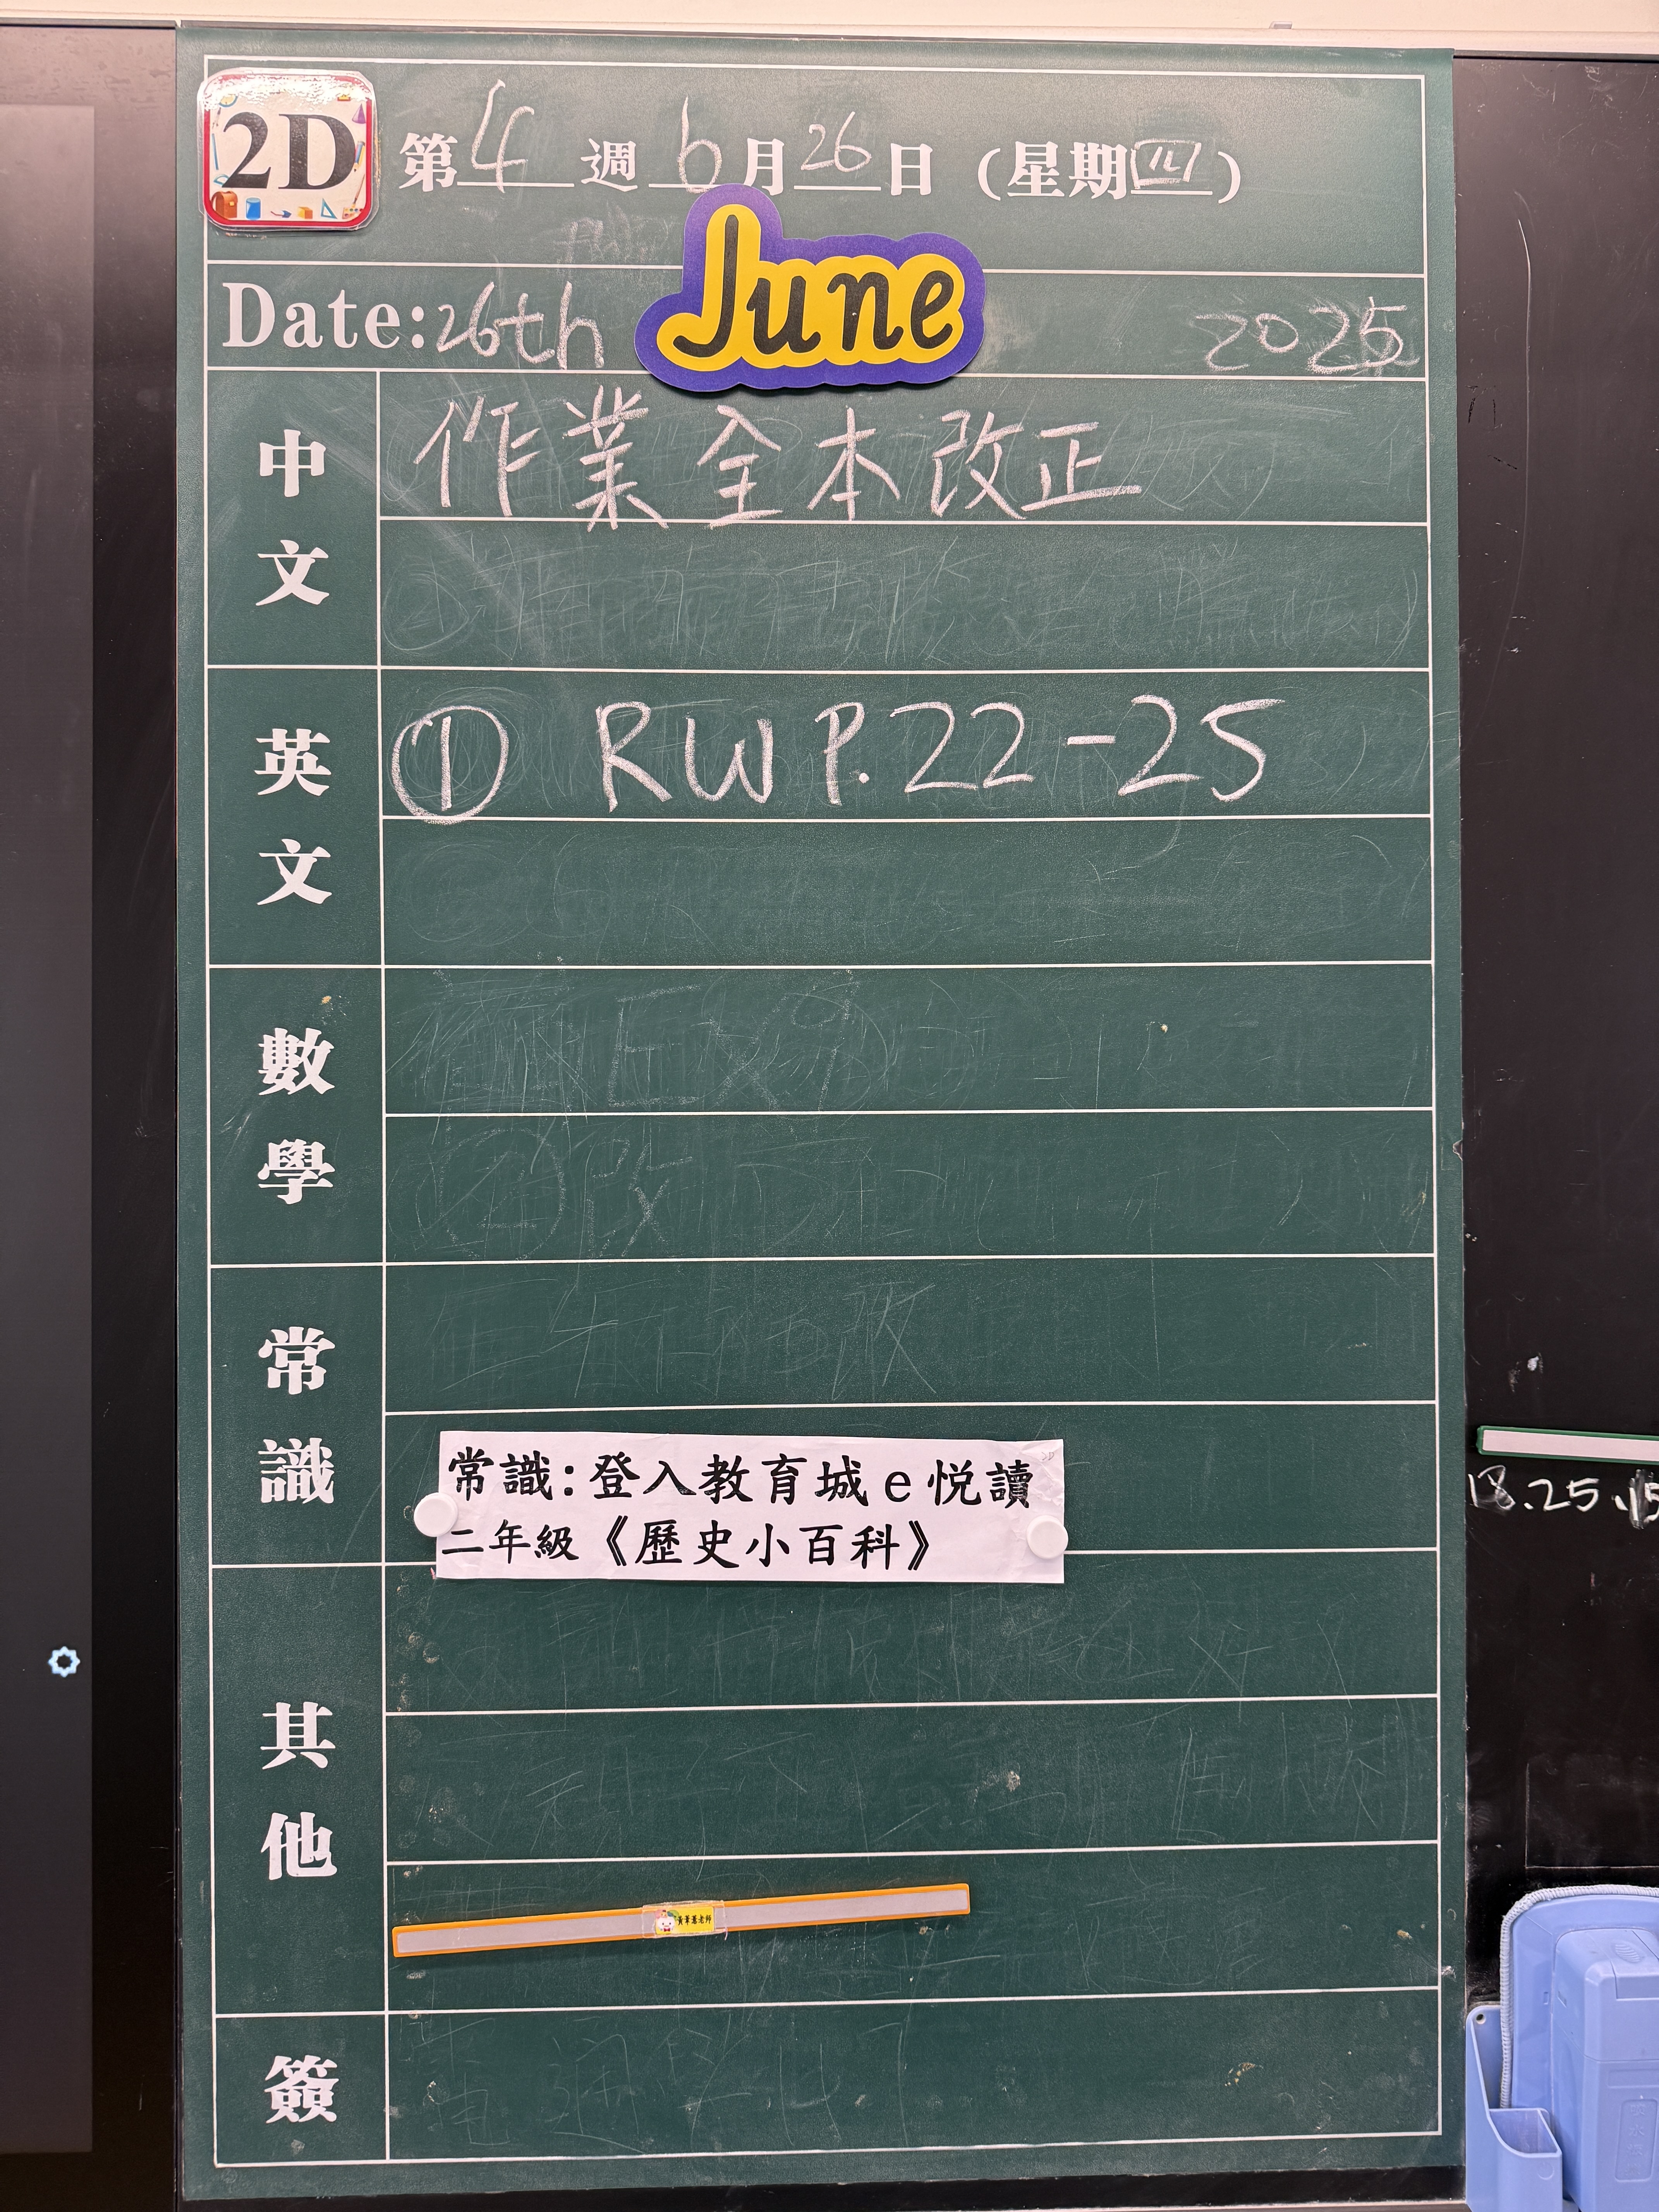 2D
第4週 6月26日(星期四)
Date:26th June 2025
中文
作業全本改正
英文
① RW P.22-25
數學
常識
常識:登入教育城e悦讀
二年級《歷史小百科》
其他
簽
18.25.15